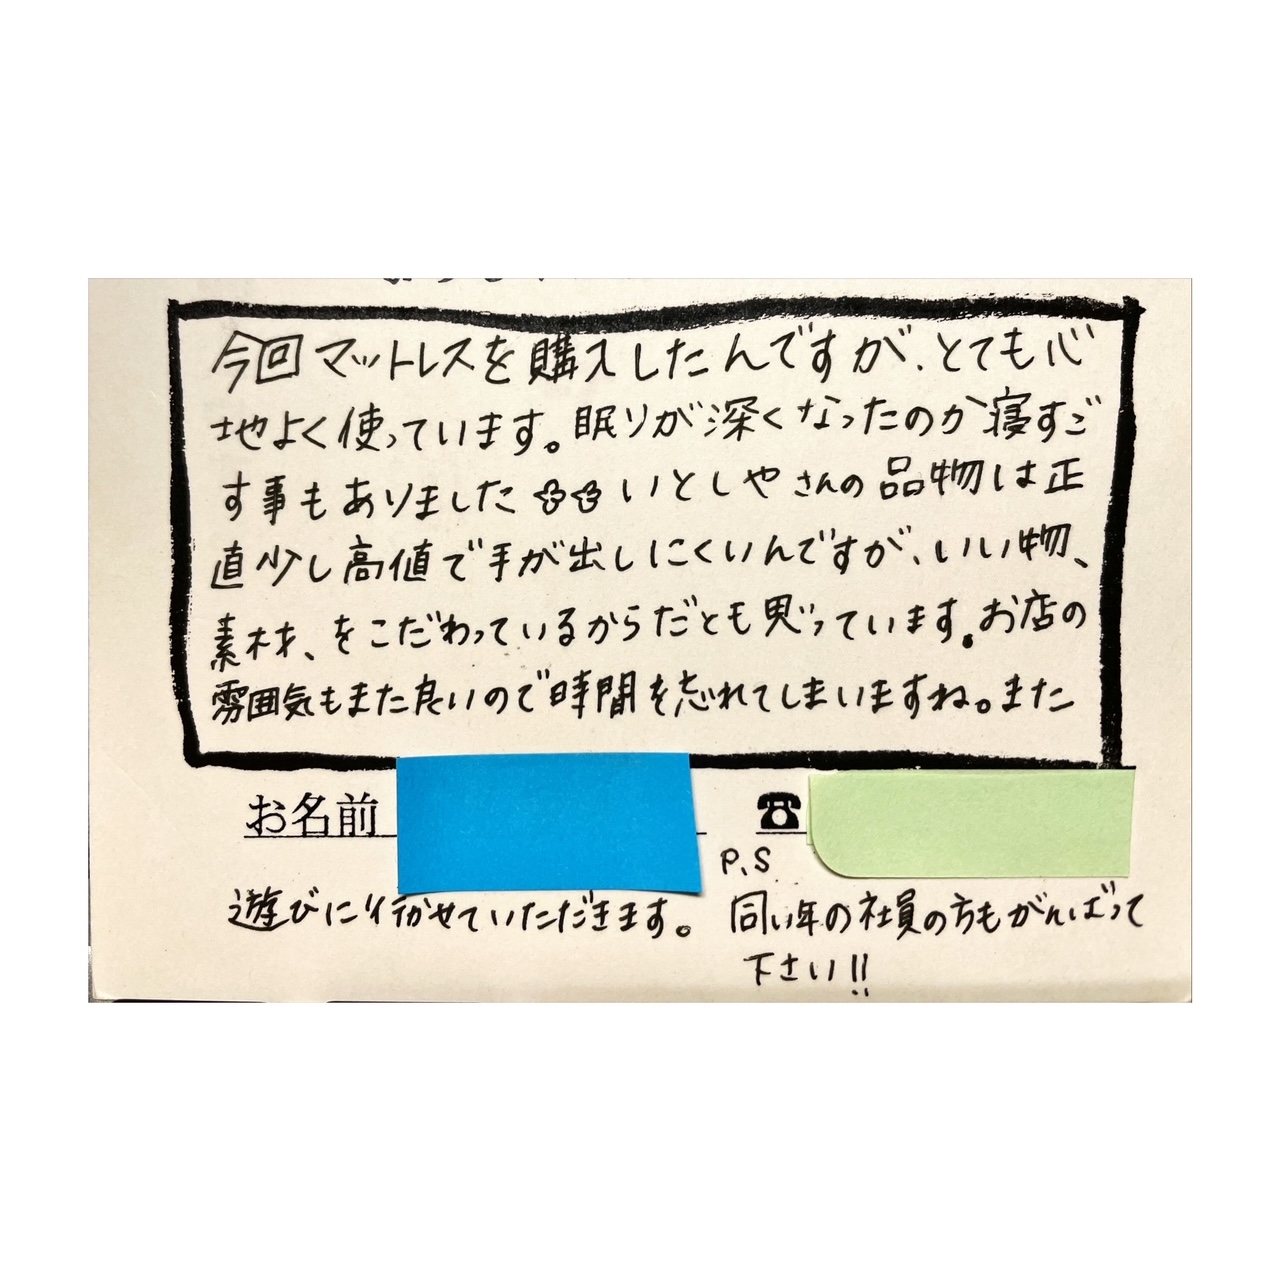 今回マットレスを購入したんですが、とても心
地よく使っています。眠りが深くなったのか寝すご
す事もありました いとしやさんの品物は正
直少し高値で手が出しにくいんですが、いい物、
素材、をこだわっているからだとも思っています。お店の
雰囲気もまた良いので時間を忘れてしまいますね。また
お名前 ☎
P.S
遊びに行かせていただきます。 同い年の社員の方もがんばって
下さい!!